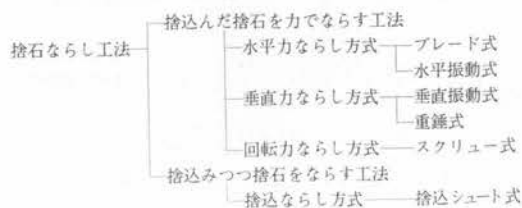 捨込んだ捨石を力でならす工法
水平力ならし方式 ブレード式
捨石ならし工法
水平振動式
垂直力ならし方式 垂直振動式
重錘式
回転力ならし方式 スクリュー式
捨込みつつ捨石をならす工法
捨込ならし方式 捨込シュート式